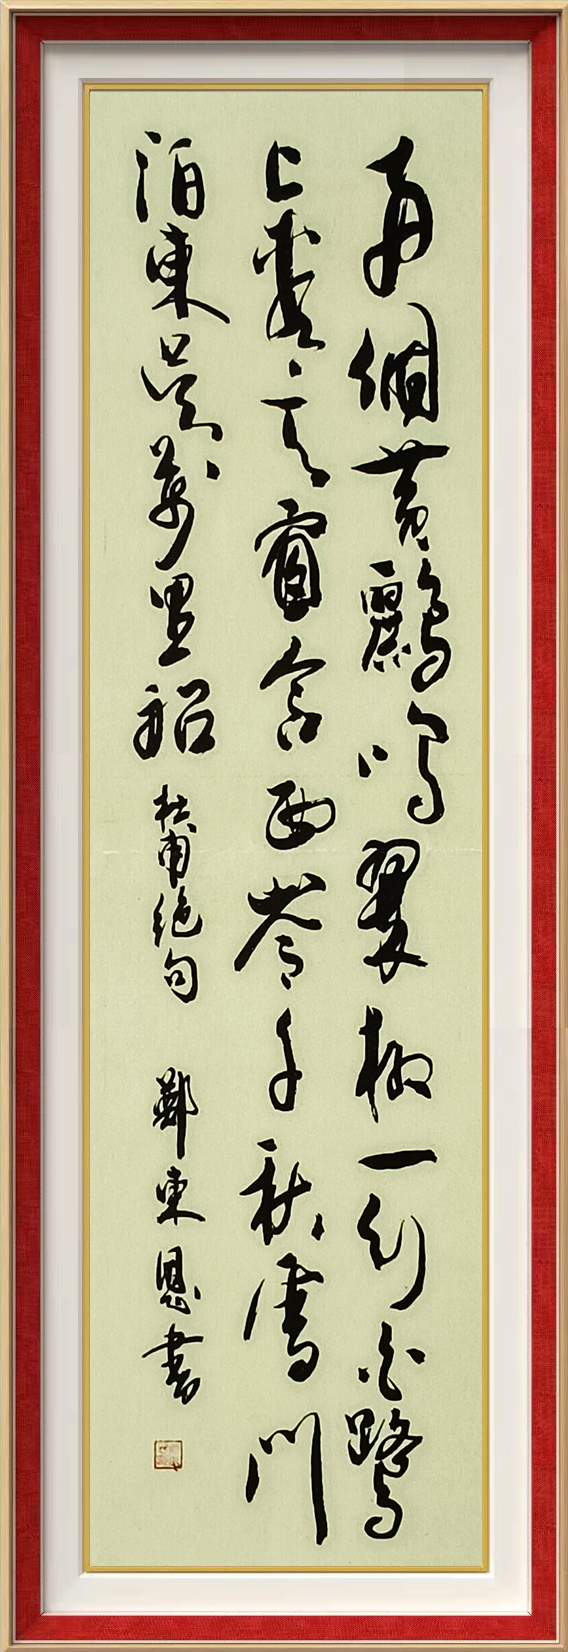 两個黄鸝鳴翠柳一行白鷺
上青天窗含西岭千秋雪門
泊東吴萬里船 杜甫绝句 鄭東恩書